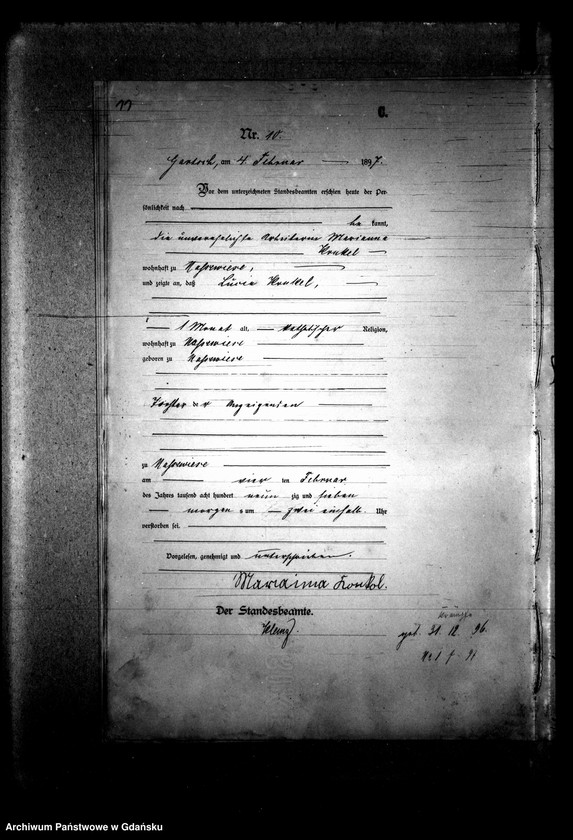 C.
Nr. 10.
am 4. Februar 1897.
Vor dem unterzeichneten Standesbeamten erschien heute der Per-
sönlichkeit nach
be kannt,
die unverehelichte Arbeiterin Marianna
Konkel
wohnhaft zu
und zeigte an, daß Lucia Konkel,
1 Monat alt, katholischer Religion,
wohnhaft zu
geboren zu
Tochter der Anzeigenden
zu
am vier ten Februar
des Jahres tausend acht hundert neun zig und sieben
morgens um zwei einhalb Uhr
verstorben sei.
Vorgelesen, genehmigt und unterschrieben.
Marianna Konkol.
Der Standesbeamte.
geb. 31. 12. 96.
Archiwum Państwowe w Gdańsku